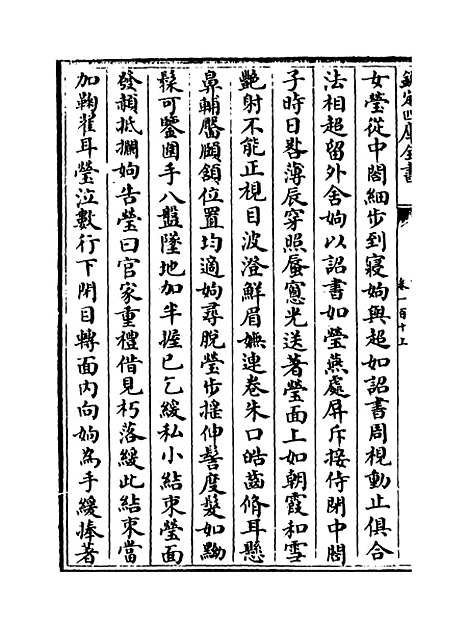 欽定四庫全書
卷一百十上
女瑩從中閤細步到寢姁與超如詔書周視動止俱合
法相超留外舍姁以詔書如瑩燕處屏斥接侍閉中閤
子時日晷薄辰穿照蜃窻光送著瑩面上如朝霞和雪
艷射不能正視目波澄鮮眉嫵連卷朱口皓齒脩耳懸
鼻輔靨頤頷位置均適姁尋脫瑩步搖伸髻度髮如黝
髹可鑒圍手八盤墜地加半握已乞緩私小結束瑩面
發赬抵攔姁告瑩曰官家重禮借見朽落緩此結束當
加鞠翟耳瑩泣數行下閉目轉面內向姁為手緩捧著